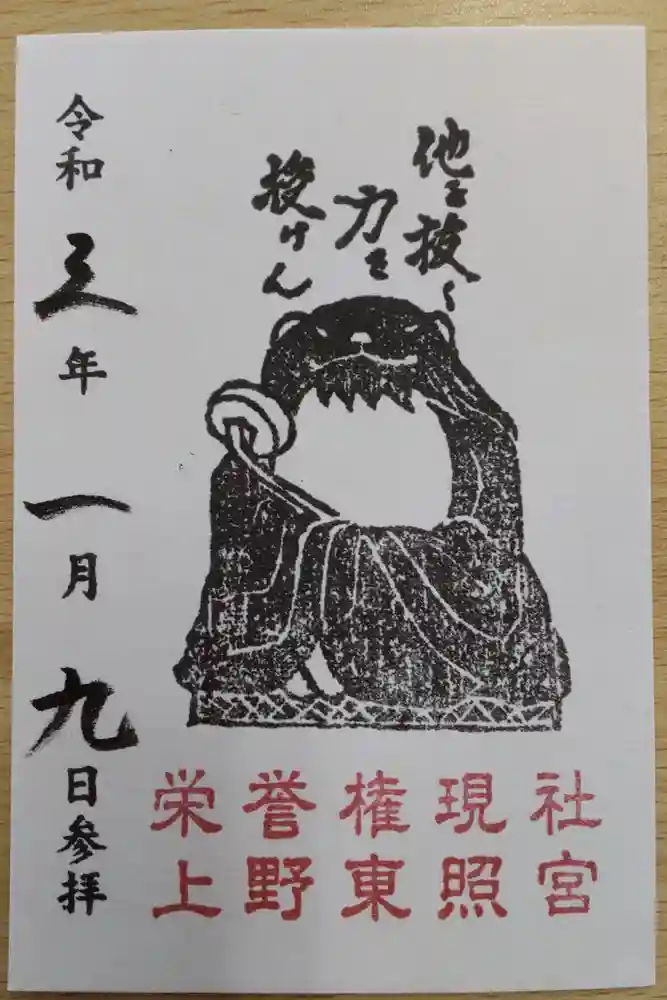 他を抜く
力を
授けん
令和三年一月九日参拝
栄誉権現社
上野東照宮